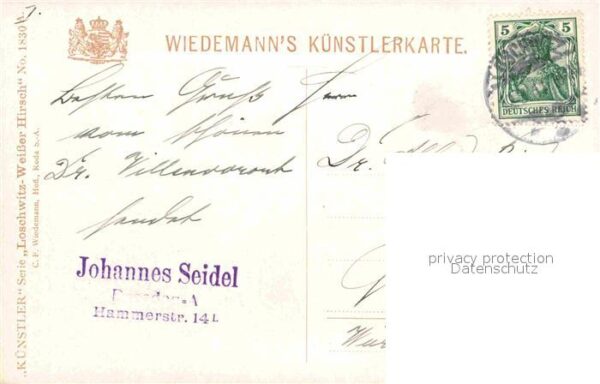 „KÜNSTLER“ Serie „Loschwitz-Weißer Hirsch“ No. 1830
C. F. Wiedemann, Hofl., Roda S.-A.
WIEDEMANN'S KÜNSTLERKARTE.
5 5
DEUTSCHES REICH
Besten Gruß
vom schönen
Dr. Villenvorort
sendet
Johannes Seidel
Dresden-A
Hammerstr. 14 I.
Herrn
Dr.
privacy protection
Datenschutz